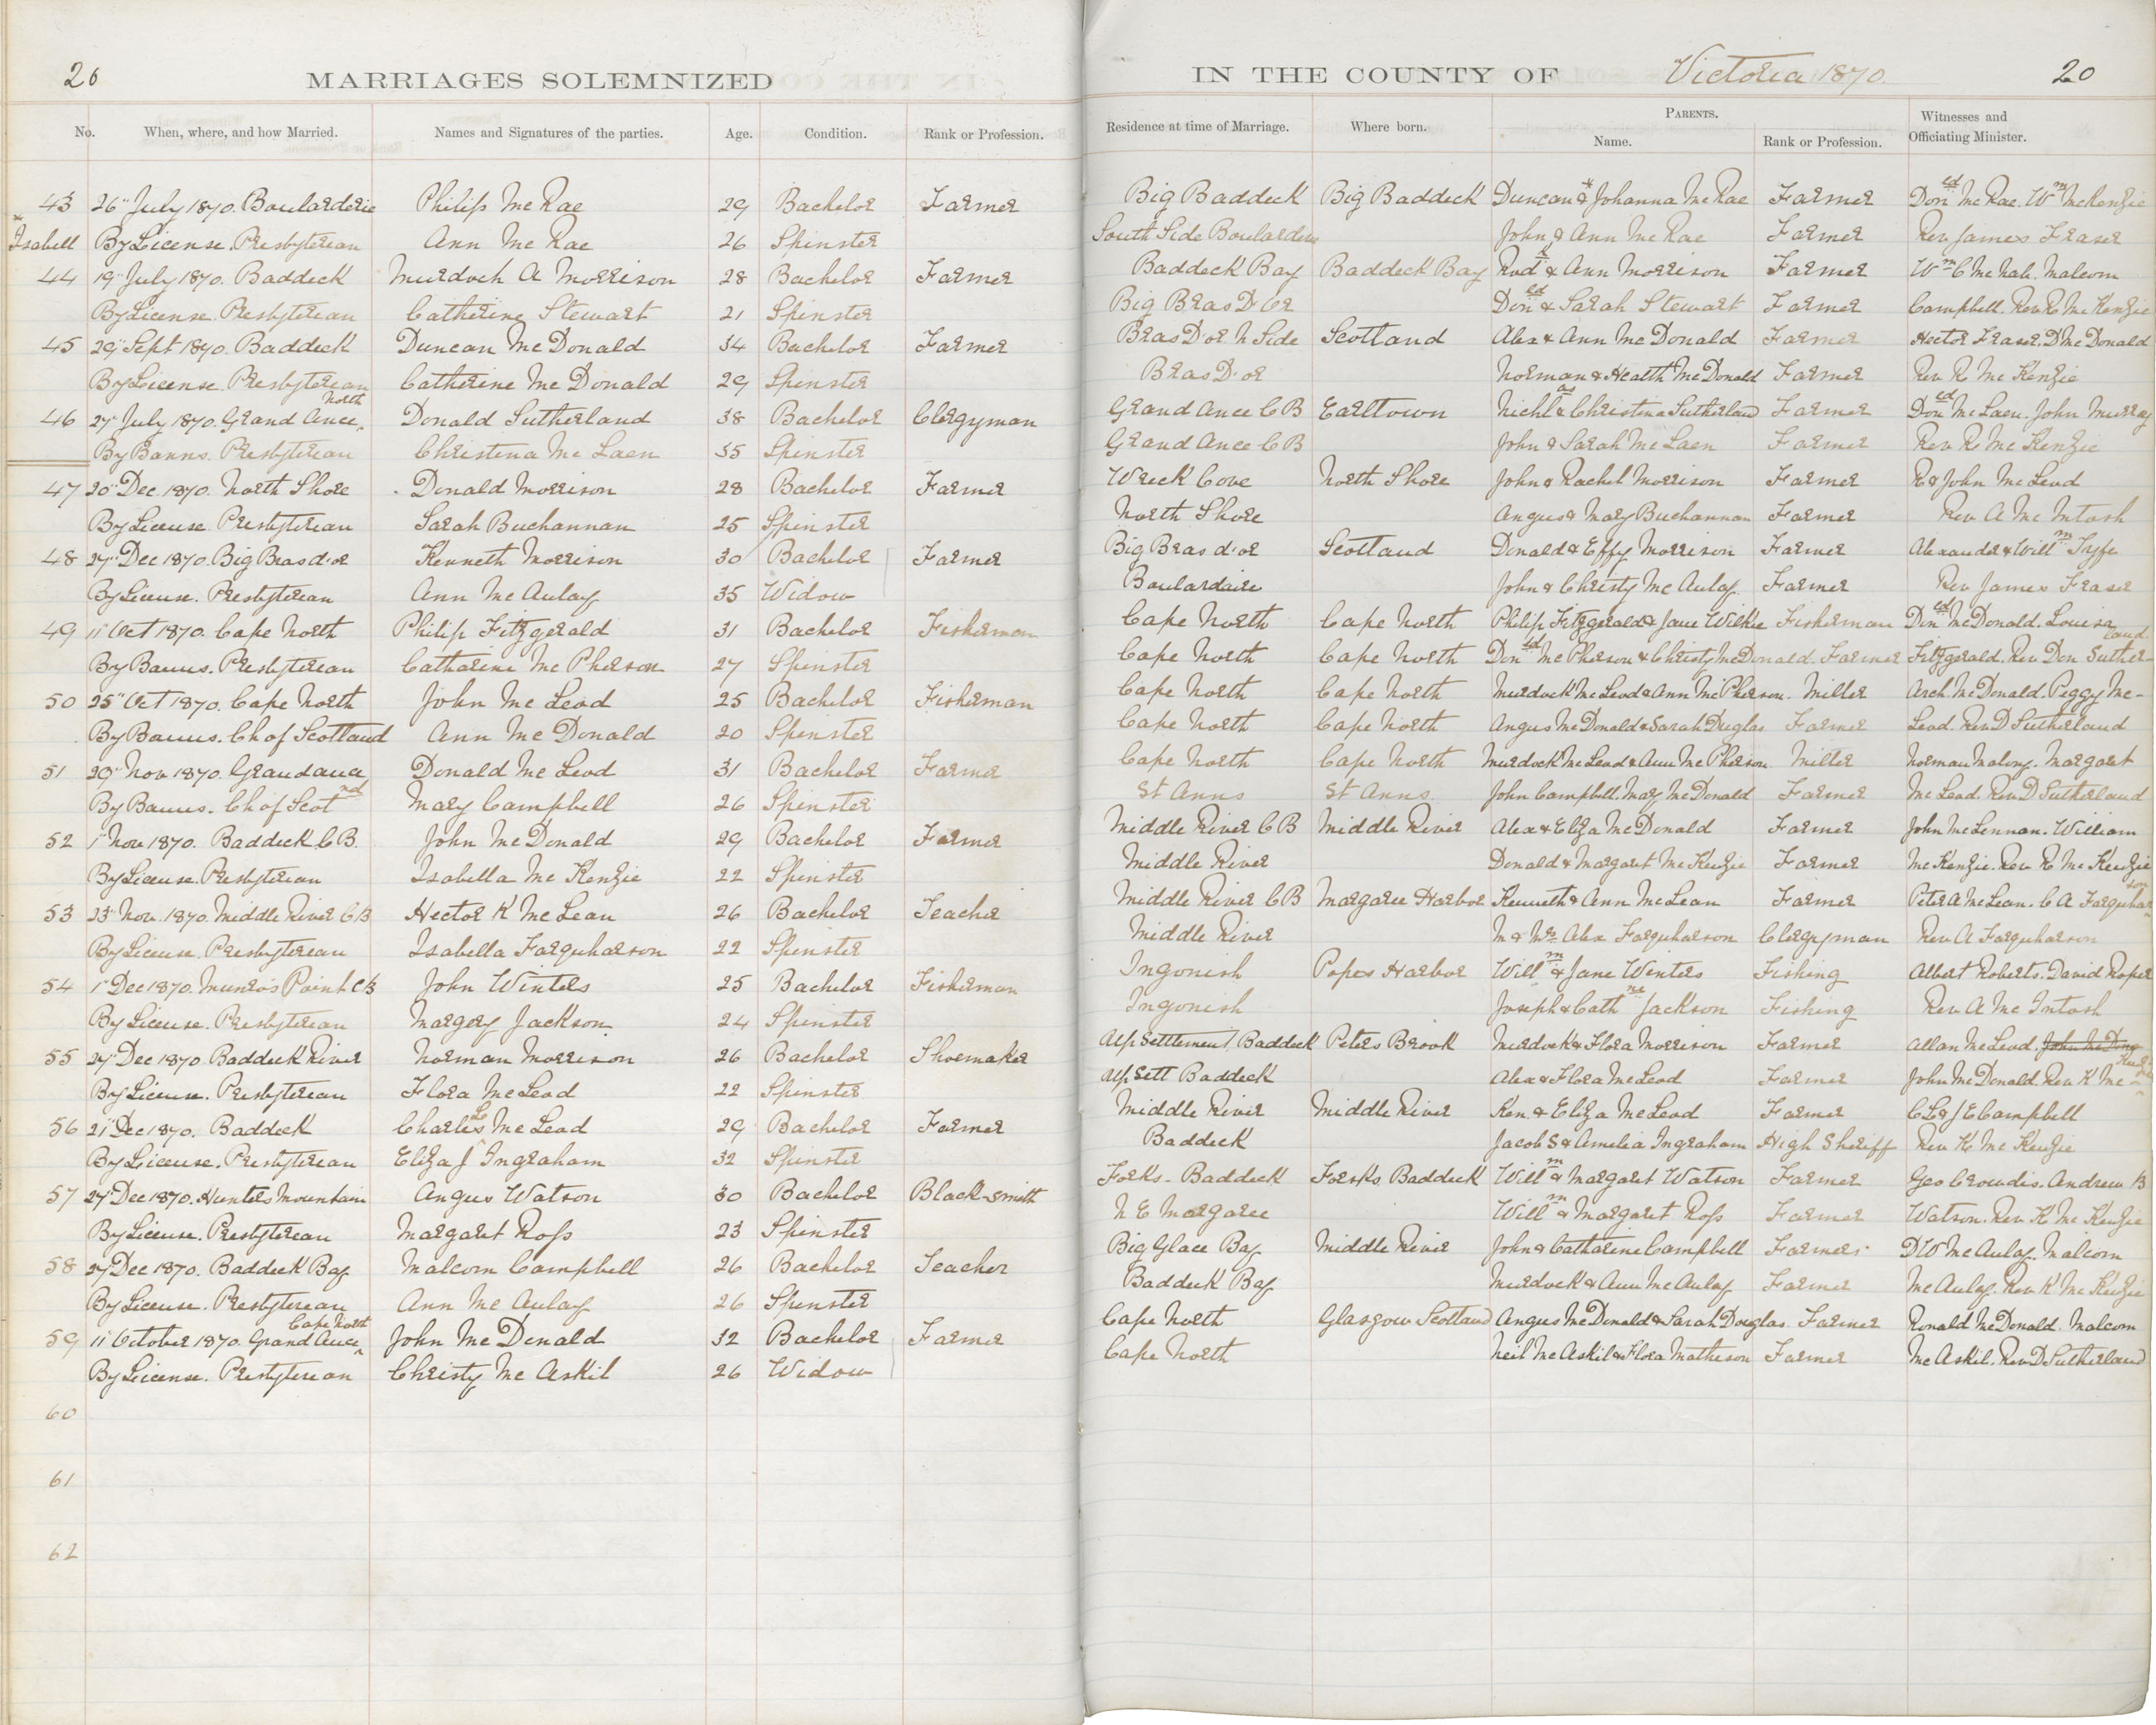 20 MARRIAGES SOLEMNIZED IN THE COUNTY OF Victoria 1870. 20
No. When, where, and how Married. Names and Signatures of the parties. Age. Condition. Rank or Profession. Residence at time of Marriage. Where born. PARENTS. Name. Rank or Profession. Witnesses and Officiating Minister.
43 26" July 1870. Boularderie Philip McRae 29 Bachelor Farmer Big Baddeck Big Baddeck Duncan & * Johanna McRae Farmer Don ld McRae. Wm McKenzie
* Isabell By License. Presbyterian Ann McRae 26 Spinster South Side Boularderie John & Ann McRae Farmer Rev James Fraser
44 19" July 1870. Baddeck Murdoch A Morrison 28 Bachelor Farmer Baddeck Bay Baddeck Bay Rod k & Ann Morrison Farmer Wm C McNab. Malcom
By License. Presbyterian Catherine Stewart 21 Spinster Big Bras D'Or Don ld & Sarah Stewart Farmer Campbell. Rev K McKenzie
45 29" Sept 1870. Baddeck Duncan McDonald 34 Bachelor Farmer Bras D'or N Side Scotland Alex & Ann McDonald Farmer Hector Fraser. D McDonald
By License. Presbyterian Catherine McDonald 29 Spinster Bras D'or Norman & Health McDonald Farmer Rev K McKenzie
46 27" July 1870. Grand Ance, North Donald Sutherland 38 Bachelor Clergyman Grand Ance C B Earltown Nichl as & Christina Sutherland Farmer Don ld McLaen. John Murray
By Banns. Presbyterian Christena McLaen 35 Spinster Grand Ance C B John & Sarah McLaen Farmer Rev K McKenzie
47 20" Dec 1870. North Shore Donald Morrison 28 Bachelor Farmer Wreck Cove North Shore John & Rachel Morrison Farmer R & John McLeod
By License Presbyterian Sarah Buchannan 25 Spinster North Shore Angus & Mary Buchannan Farmer Rev A McIntosh
48 27" Dec 1870. Big Bras d'or Kenneth Morrison 30 Bachelor Farmer Big Bras d'or Scotland Donald & Effy Morrison Farmer Alexander & Will m Fyfe
By License. Presbyterian Ann McAulay 35 Widow Boulardaire John & Christy McAulay. Farmer Rev James Fraser
49 11" Oct 1870. Cape North Philip Fitzgerald 31 Bachelor Fisherman Cape North Cape North Philip Fitzgerald & Jane Wilkie Fisherman Don ld McDonald. Louisa
By Banns. Presbyterian Catharine McPherson 27 Spinster Cape North Cape North Don ld McPherson & Christy McDonald. Farmer Fitzgerald. Rev Don Sutherland
50 25" Oct 1870. Cape North John McLeod 25 Bachelor Fisherman Cape North Cape North Murdock McLeod & Ann McPherson. Miller Arch. McDonald. Peggy Mc-
By Banns. Ch of Scotland Ann McDonald 20 Spinster Cape North Cape North Angus McDonald & Sarah Duglas Farmer Leod. Rev D Sutherland
51 29" Nov 1870. Grand ance, Donald McLeod 31 Bachelor Farmer Cape North Cape North Murdock McLeod & Ann McPherson Miller Norman Malony. Margaret
By Banns. Ch of Scot nd Mary Campbell 26 Spinster St Anns St Anns. John Campbell. Mary McDonald Farmer McLeod. Rev D Sutherland
52 1" Nov 1870. Baddeck C B. John McDonald 29 Bachelor Farmer Middle River C B Middle River Alex & Eliza McDonald Farmer John McLennan. William
By License. Presbyterian Isabella McKenzie 22 Spinster Middle River Donald & Margaret McKenzie Farmer McKenzie. Rev K McKenzie
53 23" Nov. 1870. Middle River C B Hector K McLean 26 Bachelor Teacher Middle River C B Margaree Harbor Kenneth & Ann McLean Farmer Peter A McLean. C A Farquharson
By License Presbyterian Isabella Farquharson 22 Spinster Middle River M & Mrs Alex Farquharson Clergyman Rev A Farquharson
54 1" Dec 1870. Munro's Point CB John Winters 25 Bachelor Fisherman Ingonish Popes Harbor Will m & Jane Winters Fishing Albert Roberts. David Roper
By License. Presbyterian Margery Jackson 24 Spinster Ingonish Joseph & Cath ne Jackson Fishing Rev A McIntosh
55 27" Dec 1870. Baddeck River Norman Morrison 26 Bachelor Shoemaker Up Settlement Baddeck Peters Brook Murdock & Flora Morrison Farmer Allan McLeod. John McDong
By License. Presbyterian Flora McLeod 22 Spinster Up Sett Baddeck Alex & Flora McLeod Farmer John McDonald. Rev K McKenzie
56 21" Dec 1870. Baddeck Charles L McLeod 29 Bachelor Farmer Middle River Middle River Ken. & Eliza McLeod Farmer C L & J E Campbell
By License. Presbyterian Eliza J Ingraham 32 Spinster Baddeck Jacob S & Amelia Ingraham High Sheriff Rev K McKenzie
57 27" Dec 1870. Hunters Mountain Angus Watson 30 Bachelor Black-smith Forks. Baddeck Forsks Baddeck Will m & Margaret Watson Farmer Geo Crowdis. Andrew B
By License. Presbyterian Margaret Ross 23 Spinster N E Margaree Will m & Margaret Ross Farmer Watson. Rev K McKenzie
58 27" Dec 1870. Baddeck Bay Malcom Campbell 26 Bachelor Teacher Big Glace Bay Middle River John & Catharine Campbell Farmer D W McAulay. Malcom
By License. Presbyterian Ann McAulay 26 Spinster Baddeck Bay Murdock & Ann McAulay Farmer McAulay. Rev K McKenzie
59 11" October 1870. Grand Ance, Cape North John McDonald 32 Bachelor Farmer Cape North Glasgow Scotland Angus McDonald & Sarah Douglas Farmer Ronald McDonald. Malcom
By License. Presbyterian Christy McAskil 26 Widow Cape North Neil McAskil & Flora Matheson Farmer McAskil. Rev D Sutherland
60
61
62